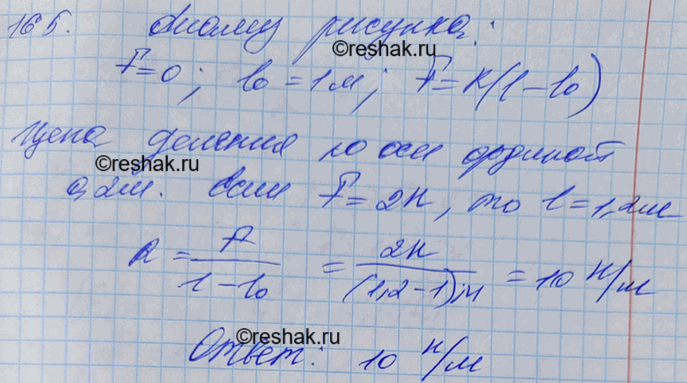 165. рисунка:
©reshak.ru
F=0; l₀=1м; F=k(l-l₀)
Цена деления по оси ординат
©reshak.ru
0,2м. Если F=2Н, то l=1,2м
k = F/(l-l₀) = 2Н/((1,2-1)м) = 10 Н/м
©reshak.ru
Ответ: 10 Н/м